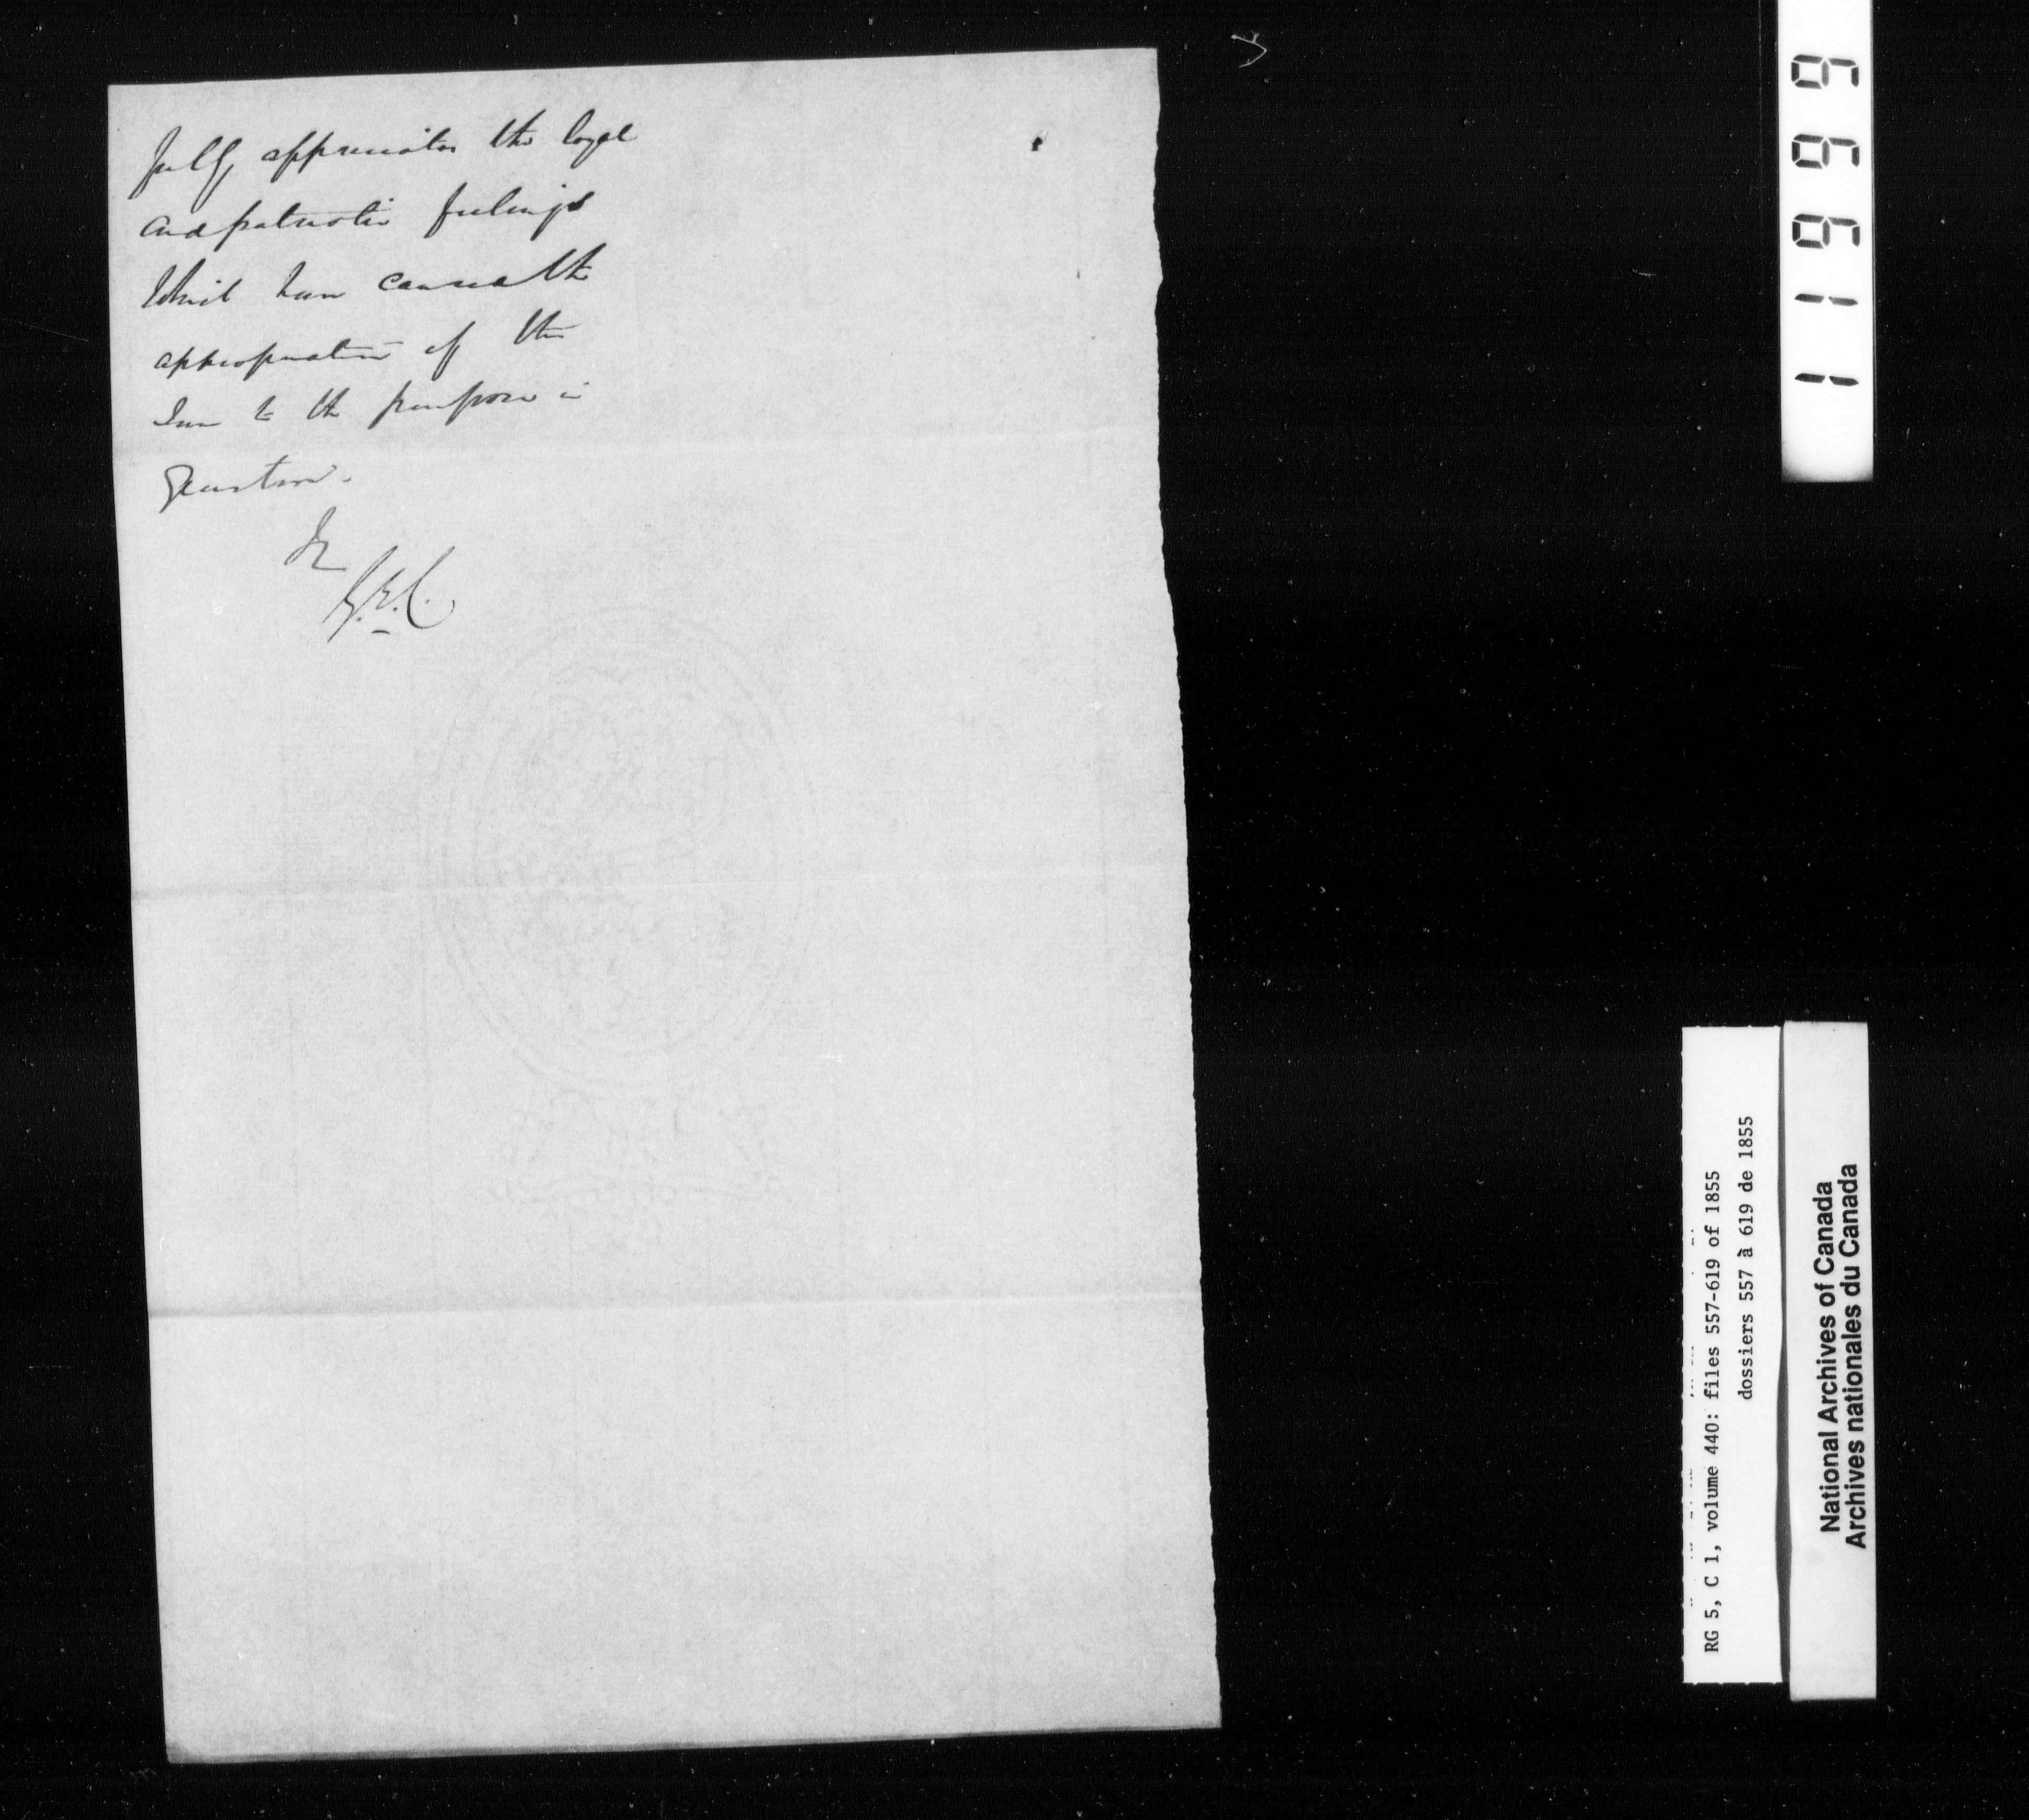 fully appreciates the loyal
and patriotic feelings
which have caused the
appropriation of the
sum to the purpose in
question.
G.E.C.
11999
RG 5, C 1, volume 440: files 557-619 of 1855
dossiers 557 à 619 de 1855
National Archives of Canada
Archives nationales du Canada